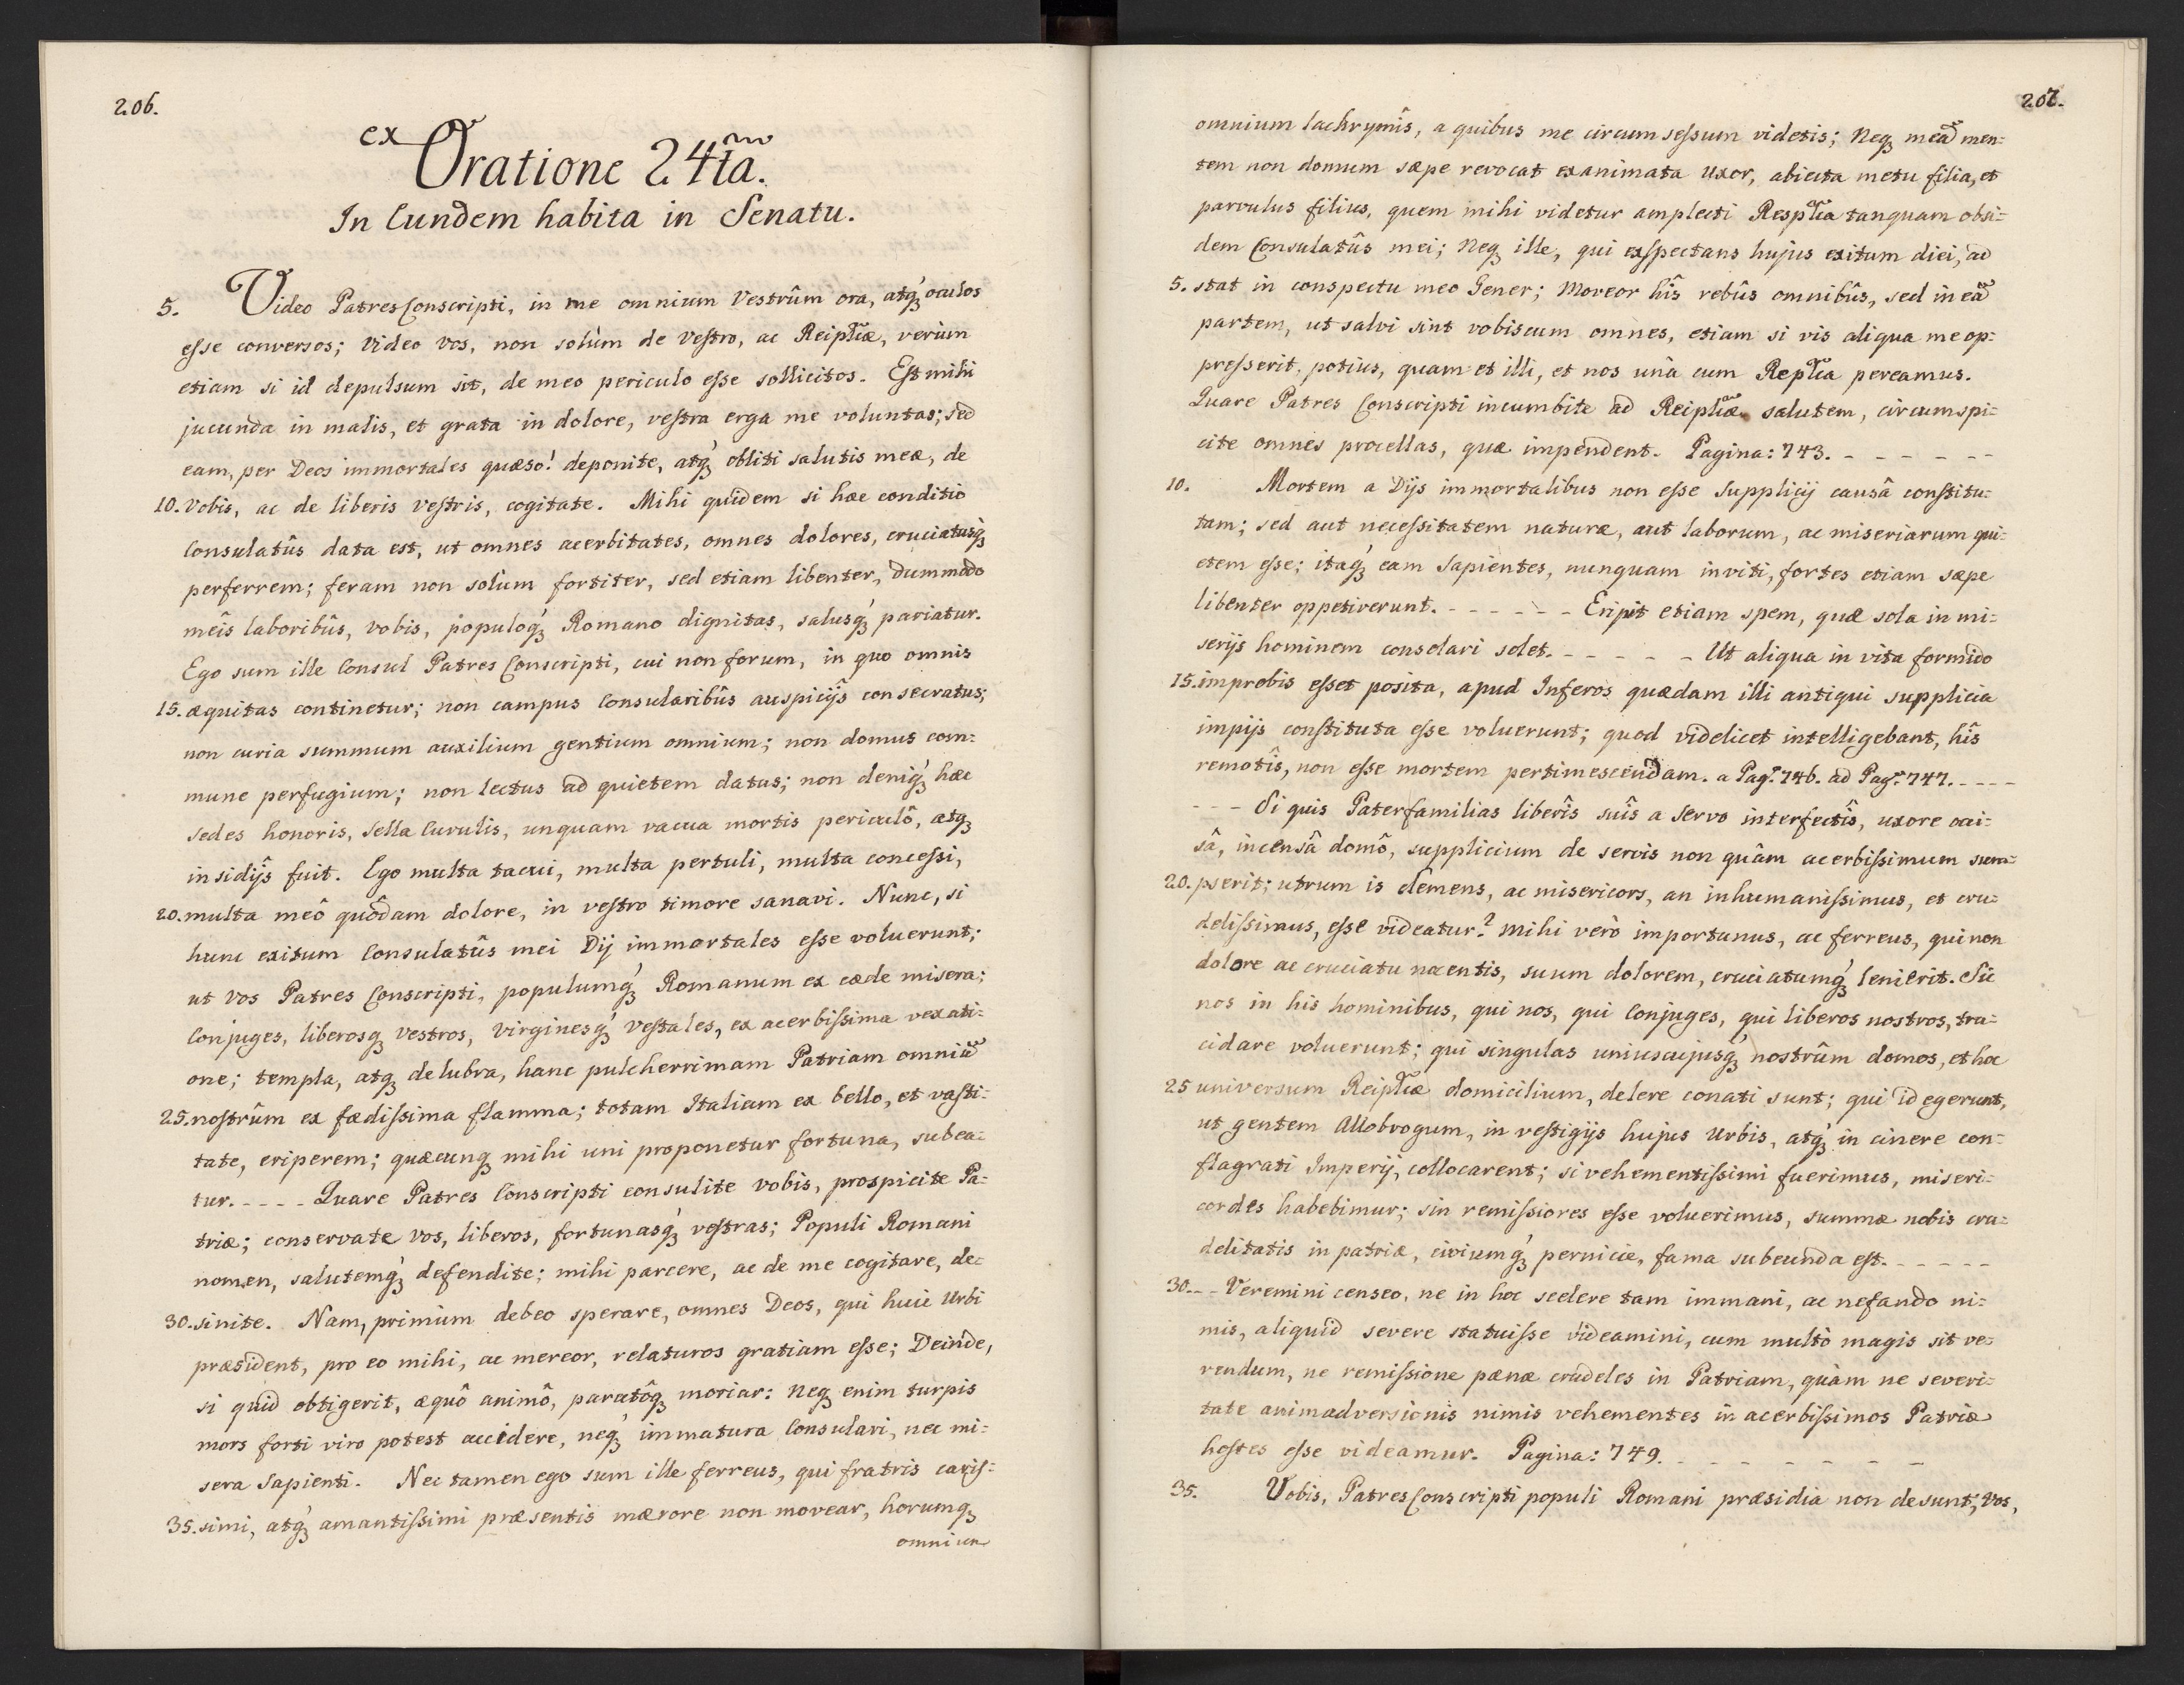 206.
ex Oratione 24ta.
In Eundem habita in Senatu.
5. Video Patres Conscripti, in me omnium Vestrûm ora, atq́ȝ oculos
eſse conversos; Video vos, non solùm de Veſtro, ac Reiplicæ, verùm
etiam si id depulsum sit, de meo periculo eſse sollicitos. Eſt mihi
jucunda in malis, et grata in dolore, veſtra erga me voluntas; sed
eam, per Deos immortales quæso! deponite, atq́ȝ obliti salutis meæ, de
10. vobis, ac de liberis veſtris, cogitate. Mihi quidem si hæc conditio
Consulatûs data est, ut omnes acerbitates, omnes dolores, cruciatusq́ȝ
perferrem; feram non solùm fortiter, sed etiam libenter, dummodo
mêis laboribûs, vobis, populoq́ȝ Romano dignitas, salusq́ȝ pariatur.
Ego sum ille Consul Patres Conscripti, cui non forum, in quo omnis
15. æquitas continetur; non campus Consularibûs auspicijs consecratus;
non curia summum auxilium gentium omnium; non domus com=
mune perfugium; non lectus ad quietem datus; non deniq́ȝ hæc
sedes honoris, sella Curulis, unquam vacua mortis periculô, atqȝ
insidijs fuit. Ego multa tacui, multa pertuli, multa conceſsi,
20. multa meô quôdam dolore, in veſtro timore sanavi. Nunc, si
hunc exitum Consulatûs mei Dij immortales esse voluerunt;
ut vos Patres Conscripti, populumq́ȝ Romanum ex cæde misera;
Conjuges, liberosqȝ vestros, Virginesq́ȝ Veſtales, ex acerbiſsima vexati=
one; templa, atqȝ delubra, hanc pulcherrimam Patriam omniũ
25. noſtrûm ex fœdiſsima flamma; totam Italiam ex bello, et vaſti=
tate, eriperem; quæcunqȝ mihi uni proponetur fortuna, subea=
tur. - - - - Quare Patres Conscripti consulite vobis, prospicite Pa=
triæ; conservate vos, liberos, fortunasq́ȝ veſtras; Populi Romani
nomen, salutemq́ȝ defendite; mihi parcere, ac de me cogitare, de=
30. sinite. Nam, primùm debeo sperare, omnes Deos, qui huic Urbi
præsident, pro eo mihi, ac mereor, relaturos gratiam esse; Deinde,
si quid obtigerit, æquô animô, paratôqȝ moriar: Neqȝ enim turpis
mors forti viro potest accidere, neq́ȝ immatura Consulari, nec mi=
sera Sapienti. Nec tamen ego sum ille ferreus, qui fratris cariſ=
35. simi, atq́ȝ amantiſsimi præsentis mærore non movear, horumqȝ
omnium
207.
omnium lachrymîs, a quibus me circumseſsum videtis; Neqȝ meã men=
tem non domum sæpe revocat exanimata uxor, abiecta metu filia, et
parvulus filius, quem mihi videtur amplecti Resplica tanquam obsi=
dem Consulatûs mei; Neqȝ ille, qui exſpectans hujus exitum diei, ad
5. stat in conspectu meo Gener; Moveor hîs rebûs omnibûs, sed in eã
partem, ut salvi sint vobiscum omnes, etiam si vis aliqua me op=
preſserit, potius, quam et illi, et nos unâ cum Replica pereamus.
Quare Patres Conscripti incumbite ad Reiplicæ salutem, circumspi=
cite omnes procellas, quæ impendent. Pagina: 743. - - - - - -
10. Mortem a Dijs immortalibus non eſse Supplicij causâ conſtitu=
tam; sed aut neceſsitatem naturæ, aut laborum, ac miseriarum qui=
etem eſse; itaq́ȝ eam Sapientes, nunquam inviti, fortes etiam sæpe
libenter oppetiverunt. - - - - - - Eripit etiam spem, quæ sola in mi=
serijs hominem consolari solet. - - - - - Ut aliqua in vita formido
15. improbis eſset posita, apud Inferos quædam illi antiqui supplicia
impijs conſtituta eſse voluerunt; quod videlicet intelligebant, hîs
remotîs, non esse mortem pertimescendam. a Pag: 746. ad Pag: 747. - - - -
- - - Si quis Paterfamilias liberîs suîs a servo interfectîs, uxore occi=
sâ, incensâ domô, supplicium de servis non quâm acerbiſsimum sum=
20. pserit; utrum is clemens, ac misericors, an inhumaniſsimus, et cru=
deliſsimus, eſse videatur? Mihi verò importunus, ac ferreus, qui non
dolore ac cruciatu nocentis, suum dolorem, cruciatumq́ȝ lenierit. Sic
nos in his hominibus, qui nos, qui Conjuges, qui liberos nostros, tru=
cidare voluerunt; qui singulas uniuscujusq́ȝ nostrûm domos, et hoc
25 universum Reiplicæ domicilium, delere conati sunt; qui id egerunt,
ut gentem Allobrogum, in veſtigijs hujus Urbis, atq́ȝ in cinere con=
flagrati Imperij, collocarent; si vehementiſsimi fuerimus, miseri=
cordes habebimur; sin remiſsiores esse voluerimus, summæ nobis cru=
delitatis in patriæ, civiumq́ȝ pernicie, fama subeunda eſt. - - - - -
30. - - Veremini censeo, ne in hoc scelere tam immani, ac nefando ni=
mis, aliquid severe statuiſse videamini, cum multò magis sit ve=
rendum, ne remiſsione pænæ crudeles in Patriam, quàm ne severi=
tate animadversionis nimis vehementes in acerbiſsimos Patriæ
hoſtes eſse videamur. Pagina: 749. - - - - - - -
35. Vobis, Patres Conscripti populi Romani præsidia non desunt; Vos,